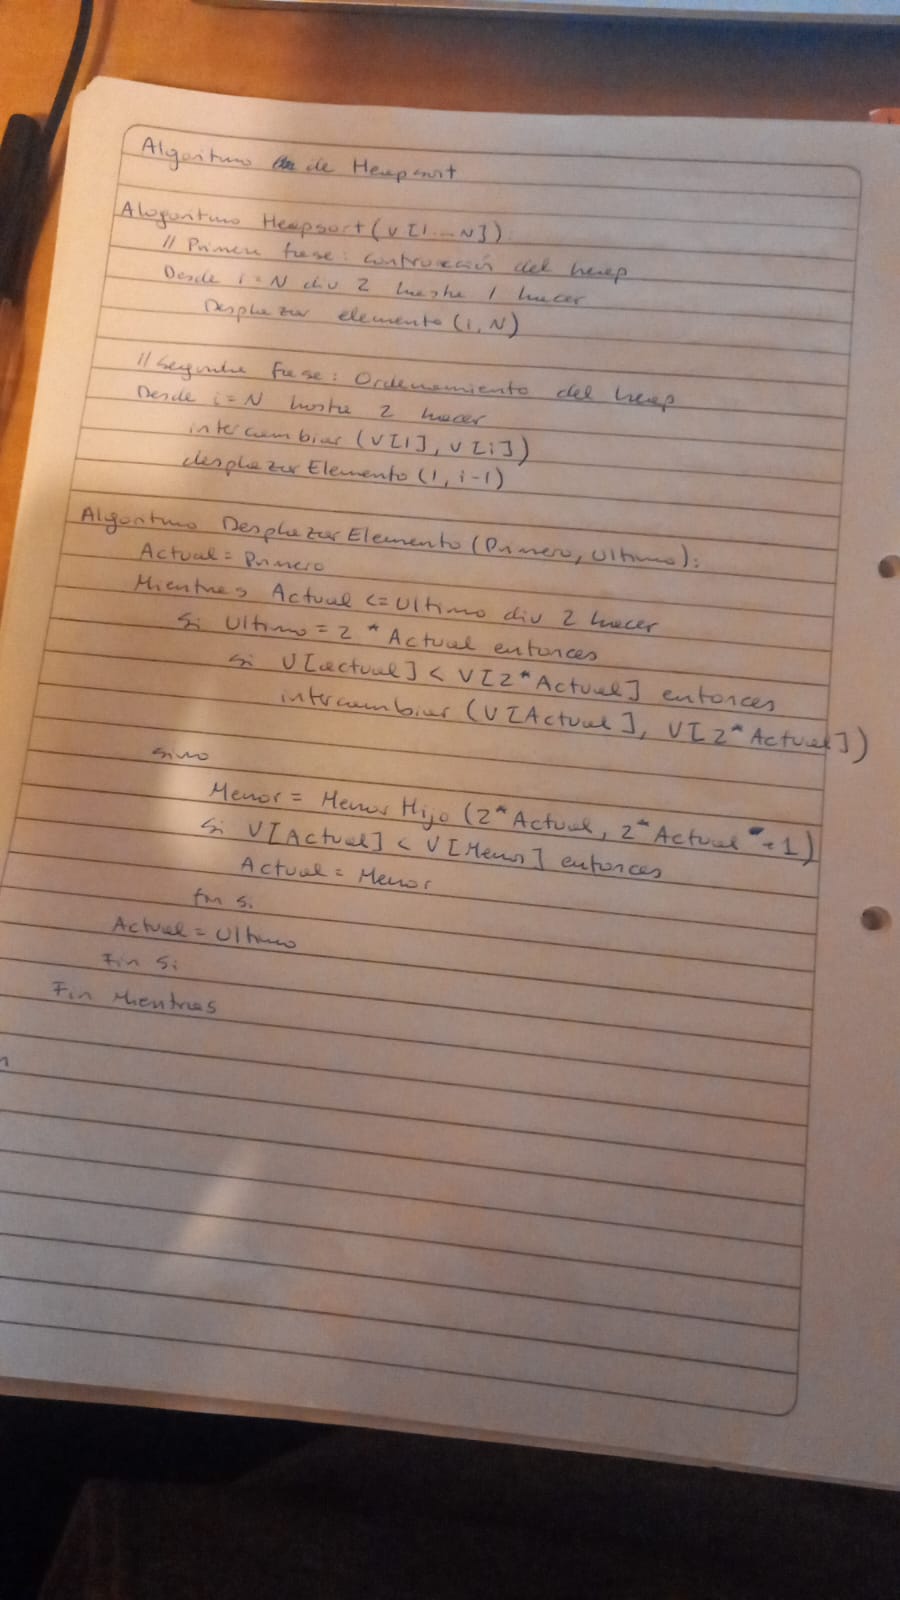 Algoritmo de Heapsort
Alogoritmo Heapsort (V [1...N]):
// Primera fase: contruxción del heap
Desde i = N div 2 hasta 1 hacer
Desplazar elemento (i, N)
// Segunda fase: Ordenamiento del heap
Desde i = N hasta 2 hacer
intercambiar (V[1], V[i])
desplazar Elemento (1, i-1)
Algoritmo Desplazar Elemento (Primero, Ultimo):
Actual = Primero
Mientras Actual <= Ultimo div 2 hacer
Si Ultimo = 2 * Actual entonces
si V[actual] < V[2*Actual] entonces
intercambiar (V[Actual], V[2*Actual])
sino
Menor = Menor Hijo (2*Actual, 2*Actual +1)
Si V[Actual] < V[Menor] entonces
Actual = Menor
fin si
Actual = Ultimo
Fin Si
Fin Mientras